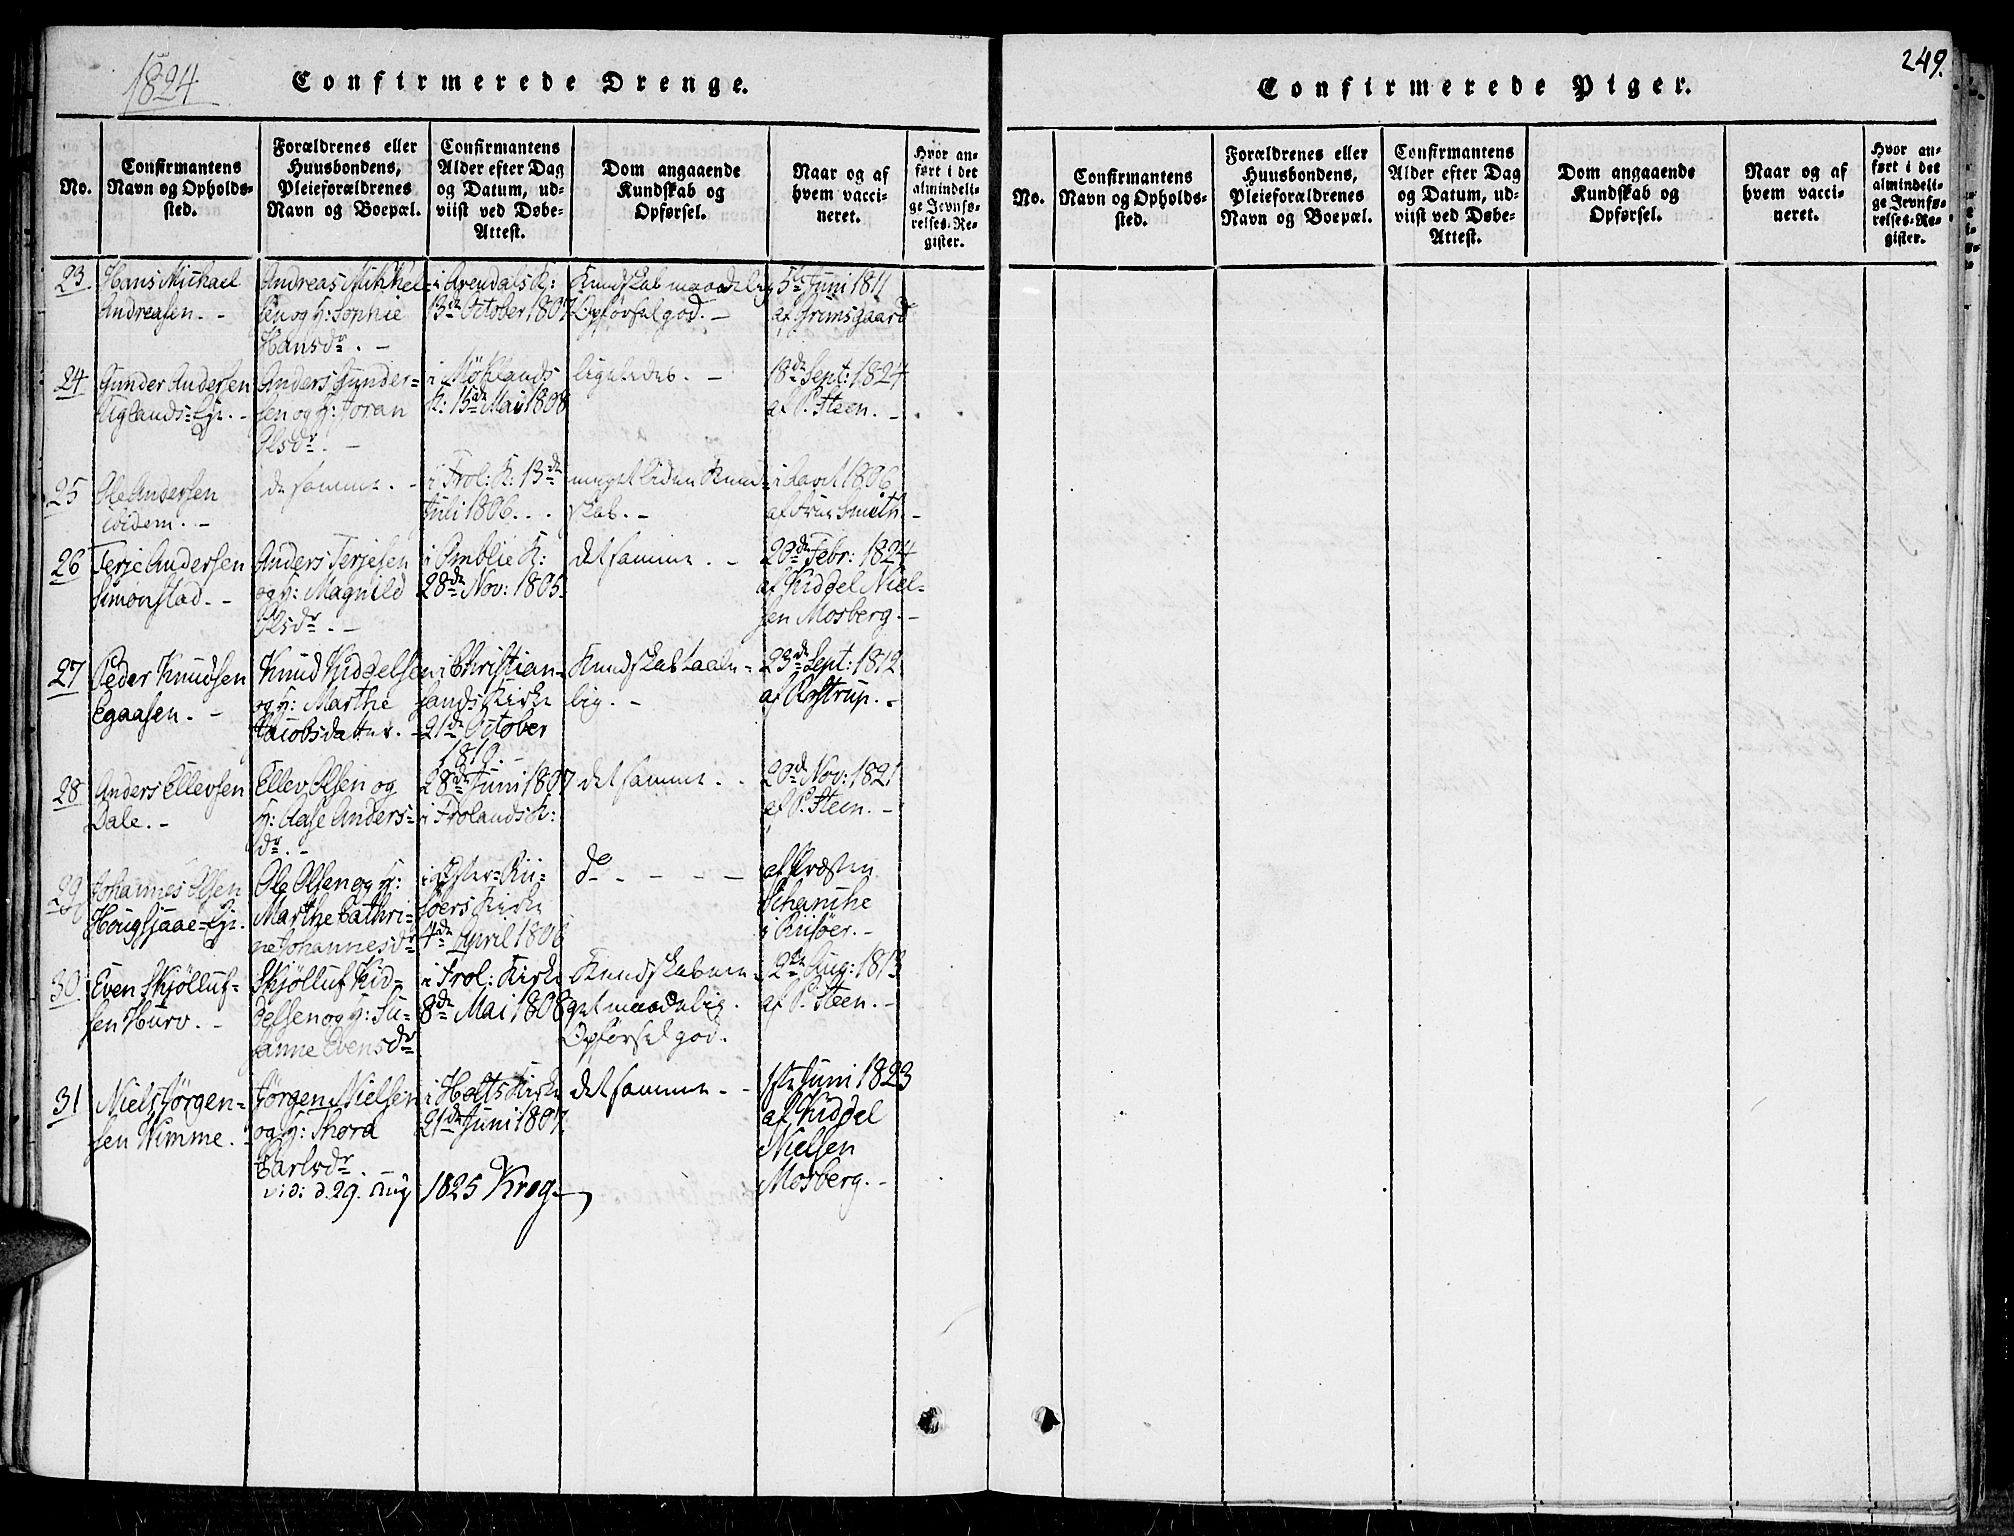 1824
Confirmerede Drenge.
No.
Confirmantens Navn og Opholds-
sted.
Forældrenes eller
Huusbondens,
Pleieforældrenes
Navn og Boepæl.
Confirmantens
Alder efter Dag
og Datum, ud-
viist ved Døbe-
Attest.
Dom angaaende
Kundskab og
Opførsel.
Naar og af
hvem vacci-
neret.
Hvor an-
ført i det
almindeli-
ge Jevnfø-
relses-Re-
gister.
23
Hans Michael
Andreasen. -
Andreas Mikkel-
sen og H: Sophie
Hansdr. -
i Arendals K:
13de October 1807
Kundskab maadelig
Opførsel god. -
5te Juni 1811
af Grimsgaard
24
Gunder Andersen
Uglands-Eje. -
Anders Gunder-
sen og H: Joran
Olsdr. -
i Møklands
K: 15de Mai 1808
ligeledes. -
18de Sept: 1824
af P. Steen. -
25
Ole Andersen
ibidem. -
de samme. -
i Frol: K: 13de
Juli 1806. -
meget liden Kund-
skab. -
i Aaret 1806
af Frue Smith -
26
Terje Andersen
Simonstad. -
Anders Terjesen
og H: Magnild
Olsdr. -
i Omblie K:
28de Nov: 1805.
det samme. -
20de Febr: 1824
af Kiddel Niel-
sen Mosberg. -
27
Peder Knudsen
Egaasen. -
Knud Kiddelsen
og H: Marthe
Jacobsdatter. -
i Christian-
sands Kirke
21de October
1810. -
Kundskab taale-
lig. -
23de Sept: 1812
af Rystrup. -
28
Anders Ellevsen
Dale. -
Ellev Olsen og
H: Aase Anders-
dr. -
28de Juni 1807
i Frolands K:
det samme. -
20de Nov: 1821
af P. Steen. -
29
Johannes Olsen
Hougsjaae-Eje.
Ole Olsen og H:
Marthe Cathri-
ne Johannesdr
i Øster-Rii-
søers Kirke
4de April 1806
do - - - -
af Præsten
Schanche
i Riisøer. -
30
Even Skjølluf-
sen Hurv. -
Skjølluf Kid-
delsen og H: Su-
sanne Evensdr
i Frol: Kirke
8de Mai 1808
Kundskab me-
get maadelig.
Opførsel god.
2de Aug: 1813
af P. Steen. -
31
Niels Jørgen-
sen Nimme. -
Jørgen Nielsen
og H: Thora
Carlsdr. -
i Holts Kirke
21de Juni 1807
det samme. -
1ste Juni 1823
af Kiddel
Nielsen
Mosberg. -
vidi d. 29. Aug 1825 Krog.
249.
Confirmerede Piger.
No.
Confirmantens
Navn og Opholds-
sted.
Forældrenes eller
Huusbondens,
Pleieforældrenes
Navn og Boepæl.
Confirmantens
Alder efter Dag
og Datum, ud-
viist ved Døbe-
Attest.
Dom angaaende
Kundskab og
Opførsel.
Naar og af
hvem vacci-
neret.
Hvor an-
ført i det
almindeli-
ge Jevnfø-
relses-Re-
gister.